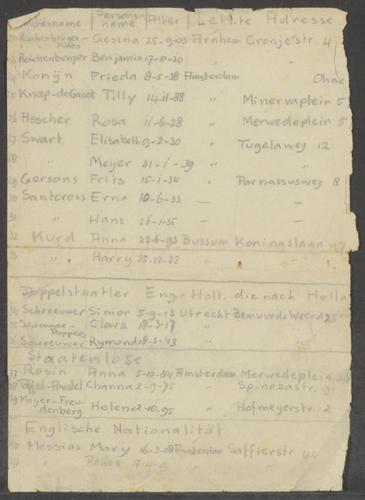 Familienname Personsname Alter Letzte Adresse
Reichenberger-Pinto Gesina 25-9-03 Arnhem Cronjéstr. 4
Reichenberger Benjamin 17-10-30 "
Konijn Frieda 8-5-38 Amsterdam Ohne
Knap-deGroot Tilly 14-11-88 " Minervaplein 5
Asscher Rosa 11-6-28 " Merwedeplein 5
Swart Elisabeth 9-2-30 " Tugelaweg 12
" Meyer 31-1-39 " "
Gersons Frits 15-1-34 " Parnassusweg 8
30 Santcross Erna 10-6-33 — —
31 " Hans 26-1-35 — —
32 Kurd Anna 22-6-93 Bussum Koningslaan
" Harry 25-12-22 " "
Doppelstaatler Eng-Holl. die nach Holla
Schreeuwer Simon 5-9-13 Utrecht Bemuurde Weerd
Clara 18-3-17 " "
Schreeuwer Rymond 18-3-43 " "
Staatenlose
37 Rosin Anna 5-10-84 Amsterdam Merwedeplein
Channa 2-9-75 " Spinozastr.
Mayer-Freudenberg Helene 2-10-95 " Hofmeyerstr. 2
Englische Nationalität
Messias Mary 16-3-08 Amsterdam Saffierstr
" "